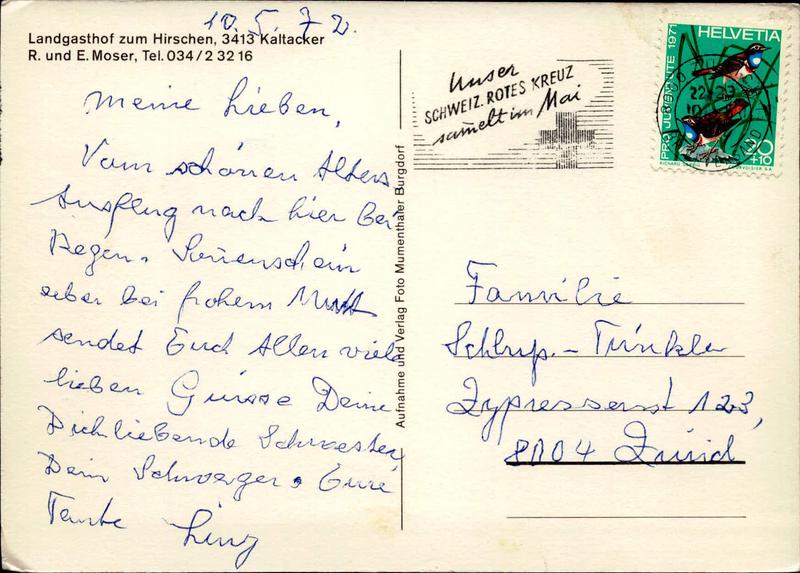 10.5.72.
Landgasthof zum Hirschen, 3413 Kaltacker
R. und E. Moser, Tel. 034/2 32 16
Meine Lieben,
Vom schönen Alters
Ausflug nach hier bei
Regen. Sonnenschein
aber bei frohem Mutt
sendet Euch Allen viele
lieben Grüsse Deine
Dichliebende Schwester
Dein Schwager. Eure
Tante
Aufnahme und Verlag Foto Mumenthaler Burgdorf
Unser
SCHWEIZ. ROTES KREUZ
sammelt im Mai
HELVETIA
PRO JUVENTUTE 1971
20
+10
Familie
Schlup.- Trinkler
Zypressenst 123,
8004 Zürich